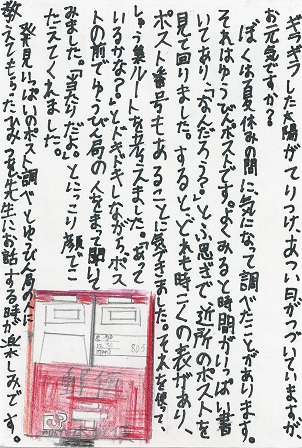 ギラギラした太陽がてりつけ、あつい日がつづいていますが、
お元気ですか？
ぼくは夏休みの間に、気になって調べたことがあります。
それはゆうびんポストです。よくみると時間がいっぱい書
いてあり、「なんだろう？」とふ思ぎで、近所のポストを
見て回りました。するとどれも時こくの表があり、
ポスト番号もあることに気づきました。それを使って、
しゅう集ルートを考えました。「あって
いるかな？」とドキドキしながらポス
トの前でゆうびん局の人をまって聞いて
みました。「当たりだよ。」とにっこり顔でこ
たえてくれました。
発見いっぱいのポスト調べとゆうびん局の人に
教えてもらったひみつを先生にお話する時が楽しみです。
805